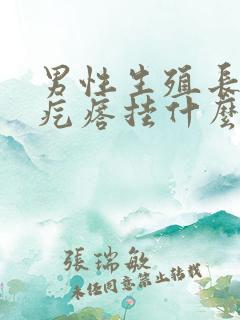 男性生殖長
疙瘩挂什麽
張瑞敏
未經同意禁止轉載